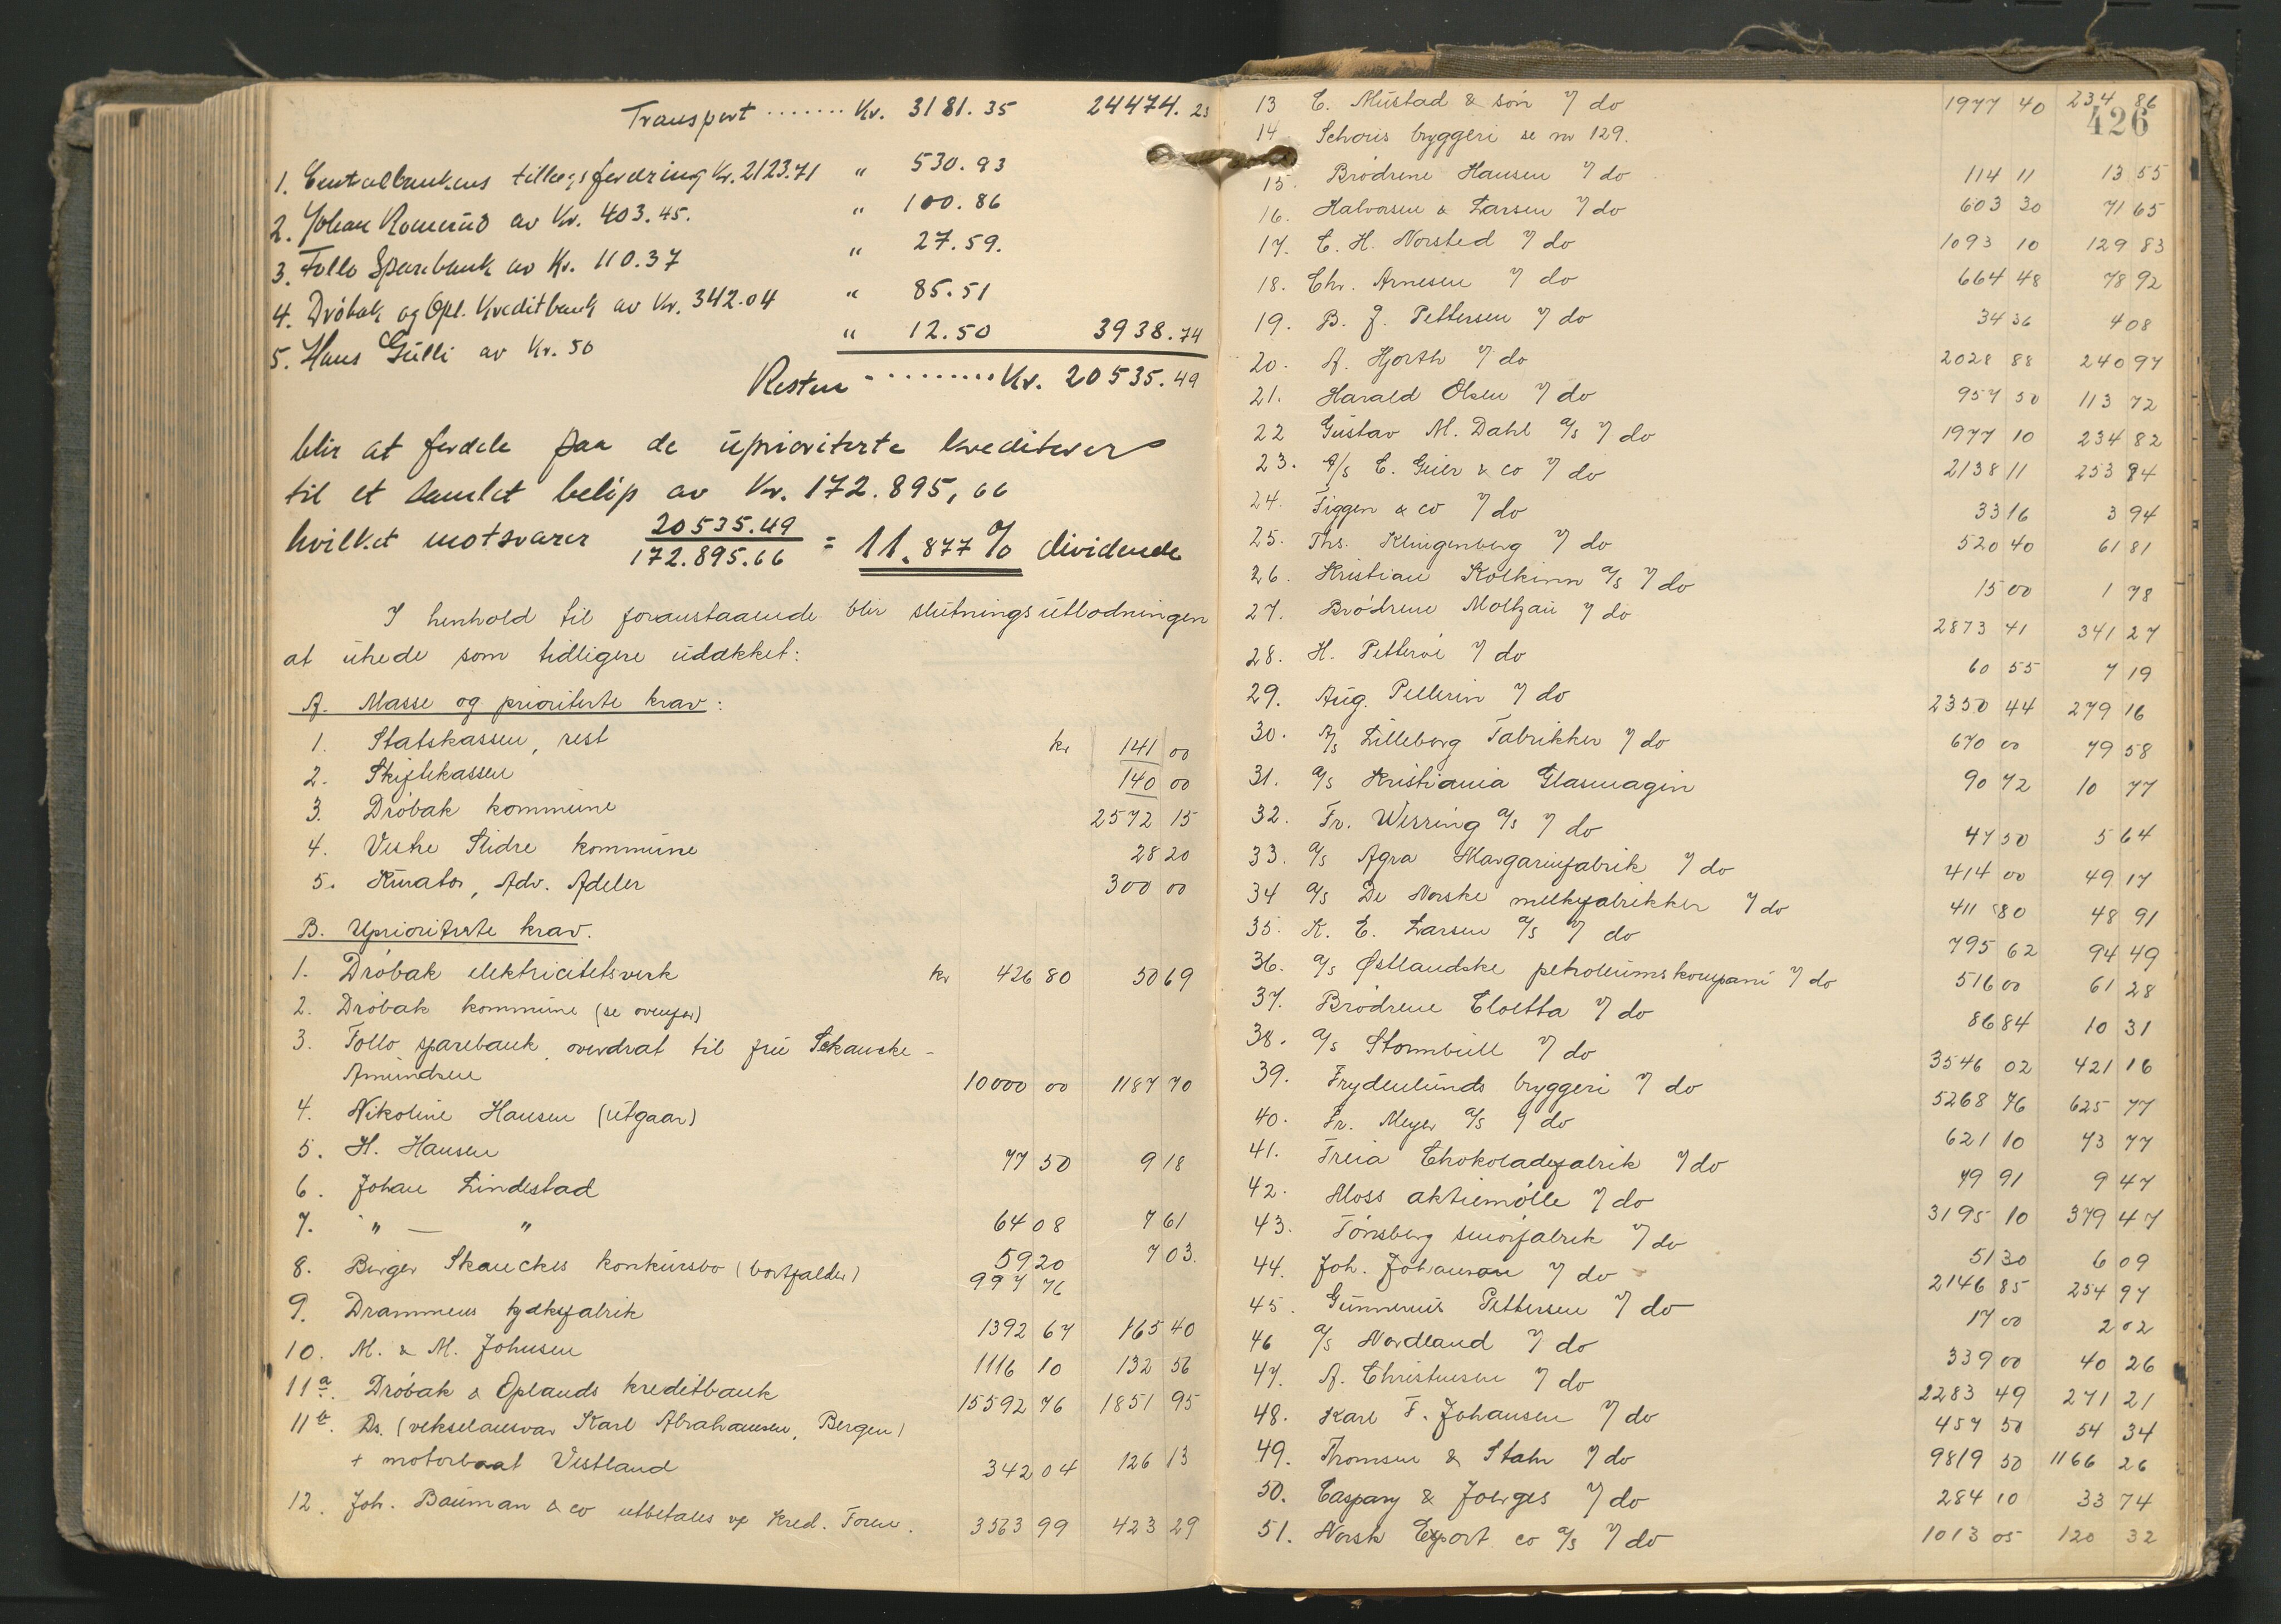 Transport ....... Kr. 3181.35 24474.23
1. Centralbankens tillægsfordring Kr. 2123.71 " 530.93
2. Johan Romerud av Kr. 403.45. " 100.86
3. Follo Sparebank av Kr. 110.37 " 27.59.
4. Drøbak og Opl. Kreditbank av Kr. 342.04 " 85.51
5. Hans Gulli av Kr. 50 " 12.50 3938.74
Resten ......... Kr. 20535.49
blir at fordele paa de uprioriterte kreditorer
til et samlet beløp av Kr. 172.895,66
hvilket motsvarer 20535.49 / 172.895.66 = 11.877% dividende
I henhold til foranstaaende blir slutningsutlodningen
at utrede som tidligere udækket:
A. Masse og prioriterte krav:
1. Statskassen, rest kr 141 00
2. Skiftekassen 140 00
3. Drøbak kommune 2572 15
4. Vestre Slidre kommune 28 20
5. Kurator, Adv. Adeler 300 00
B. Uprioriterte krav.
1. Drøbak elektricitetsverk kr 426 80 50 69
2. Drøbak kommune (se ovenfor)
3. Follo sparebank, overdrat til fru Skancke-
Amundsen 10000 00 1187 70
4. Nikoline Hansen (utgaar)
5. H. Hansen 77 50 9 18
6. Johan Lindestad 64 08 7 61
7. " — " 59 20 7 03.
8. Birger Skanckes konkursbo (bortfalder) 997 76
9. Drammens kjeksfabrik 1392 67 165 40
10. M. & M. Johnsen 1116 10 132 56
11a. Drøbak & Oplands kreditbank 15592 76 1851 95
11b. Ds. (vekselansvar Karl Abrahamsen, Bergen)
+ motorbaat Vestland 342 04 126 13
12. Joh. Bauman & co utbetales v/ Kred. Foren. 3563 99 423 29
426
13 C. Mustad & søn 7/ do 1977 40 234 86
14 Schous bryggeri se nr 129.
15. Brødrene Hansen 7/ do 114 11 13 55
16. Halvorsen & Larsen 7/ do 603 30 71 65
17. C. H. Norsted 7/ do 1093 10 129 83
18. Chr. Arnesen 7/ do 664 48 78 92
19. B. J. Pettersen 7/ do 34 36 4 08
20. A. Hjorth 7/ do 2028 88 240 97
21. Harald Olsen 7/ do 957 50 113 72
22 Gustav M. Dahl a/s 7/ do 1977 10 234 82
23. A/s C. Geier & co 7/ do 2138 11 253 94
24. Figgen & co 7/ do 33 16 3 94
25. Ths. Klingenberg 7/ do 520 40 61 81
26. Kristian Kolkinn a/s 7/ do 15 00 1 78
27. Brødrene Moltzau 7/ do 2873 41 341 27
28. H. Petterøe 7/ do 60 55 7 19
29. Aug. Pellerin 7/ do 2350 44 279 16
30. A/s Lilleborg Fabrikker 7/ do 670 00 79 58
31. a/s Kristiania Glasmagin 90 72 10 77
32. Fr. Wissing a/s 7/ do 47 50 5 64
33. a/s Agra Margarinfabrik 7/ do 414 00 49 17
34 a/s De Norske melkefabrikker 7/ do 411 80 48 91
35. K. E. Larsen a/s 7/ do 795 62 94 49
36. a/s Østlandske petroleumskompani 7/ do 516 00 61 28
37. Brødrene Cloetta 7/ do 86 84 10 31
38. a/s Stormbull 7/ do 3546 02 421 16
39. Frydenlunds bryggeri 7/ do 5268 76 625 77
40. Fr. Meyer a/s 7/ do 621 10 73 77
41. Freia Chokoladefabrik 7/ do 79 91 9 47
42. Moss aktiemølle 7/ do 3195 10 379 47
43. Tønsberg smørfabrik 7/ do 51 30 6 09
44. Joh. Johansen 7/ do 2146 85 254 97
45. Gunnerius Pettersen 7/ do 17 00 2 02
46 a/s Nordland 7/ do 339 00 40 26
47. A. Christensen 7/ do 2283 49 271 21
48. Karl F. Johansen 7/ do 457 50 54 34
49. Thomsen & Stahr 7/ do 9819 50 1166 26
50. Caspary & Joerges 7/ do 284 10 33 74
51. Norsk Export co a/s 7/ do 1013 05 120 32